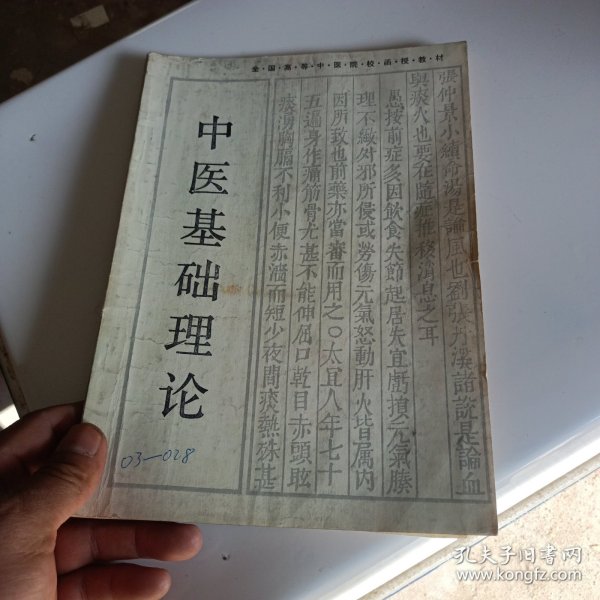 全·国·高·等·中·医·院·校·函·授·教·材
中医基础理论
03-028
張仲景小續命湯是論風也劉張丹溪諸説是論血
與痰火也要在隨症推移消息之耳
愚按前症多因飲食失節起居失宜虧損元氣腠
理不緻外邪所侵或勞傷元氣怒動肝火皆屬内
因所致也前藥亦當審而用之○太宜人年七十
五遍身作痛筋骨尤甚不能伸屈口乾目赤頭眩
痰湧胸膈不利小便赤濇而短少夜間痰熱殊甚
孔夫子旧书网
www.kongfz.com